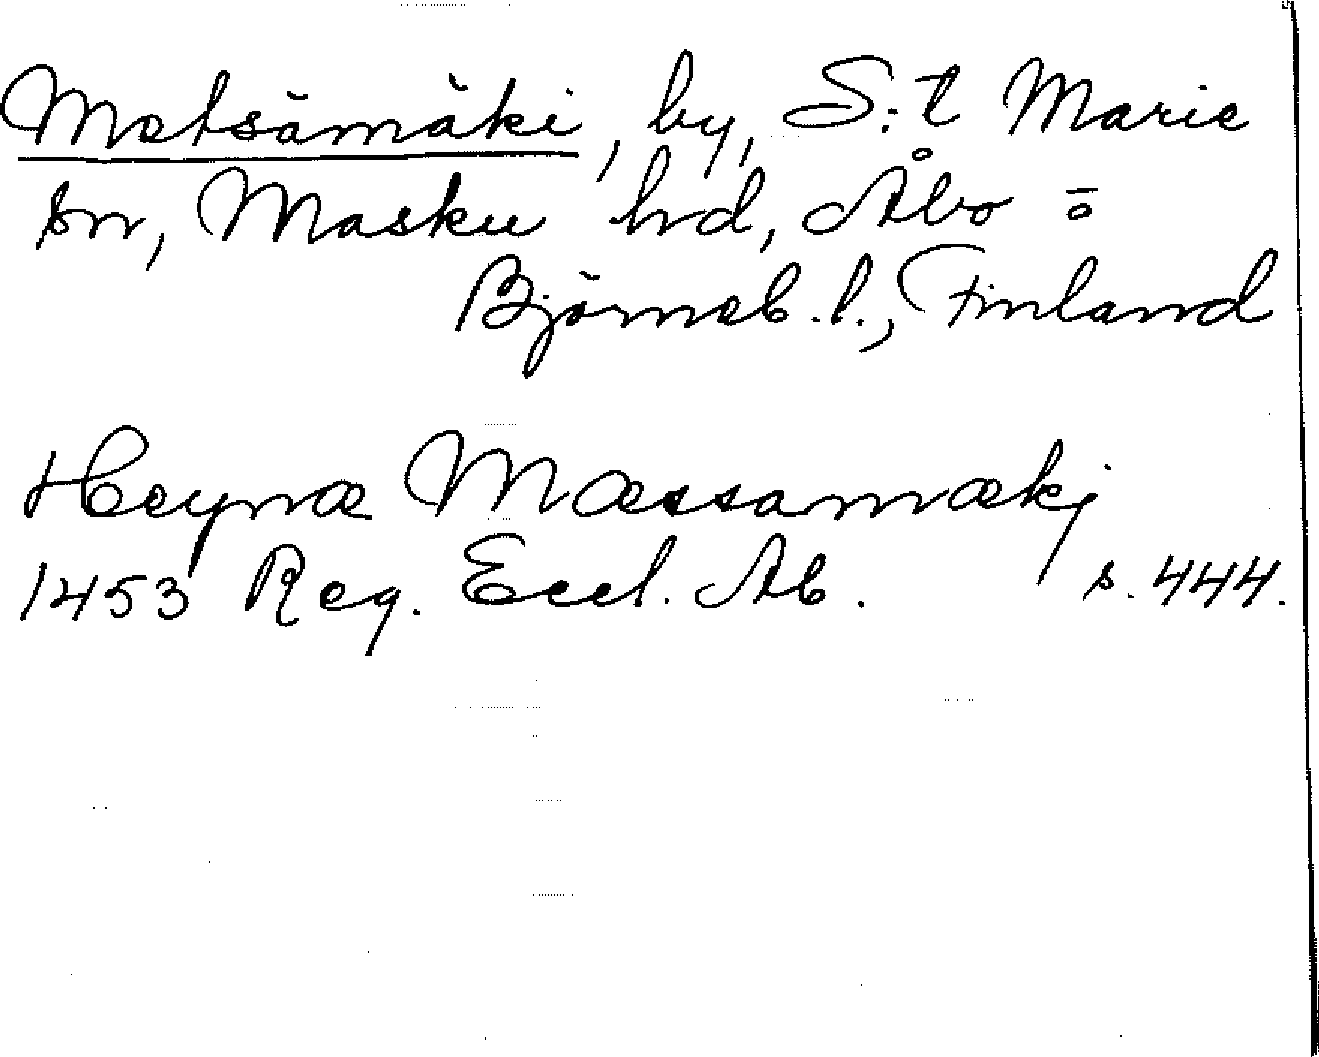 Metsämäki, by, S:t Marie
sn, Masku hd, Åbo =
Björneb. l., Finland
Heyno Mæssamæki
1453 Reg. Eccl. Ab. s. 444.